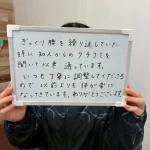 ぎっくり腰を繰り返していた
時に知人からのクチコミを
聞いて以来通っています。
いつも丁寧に調整してくださる
ので以前よりも体が楽に
なってきています。ありがとうございます。